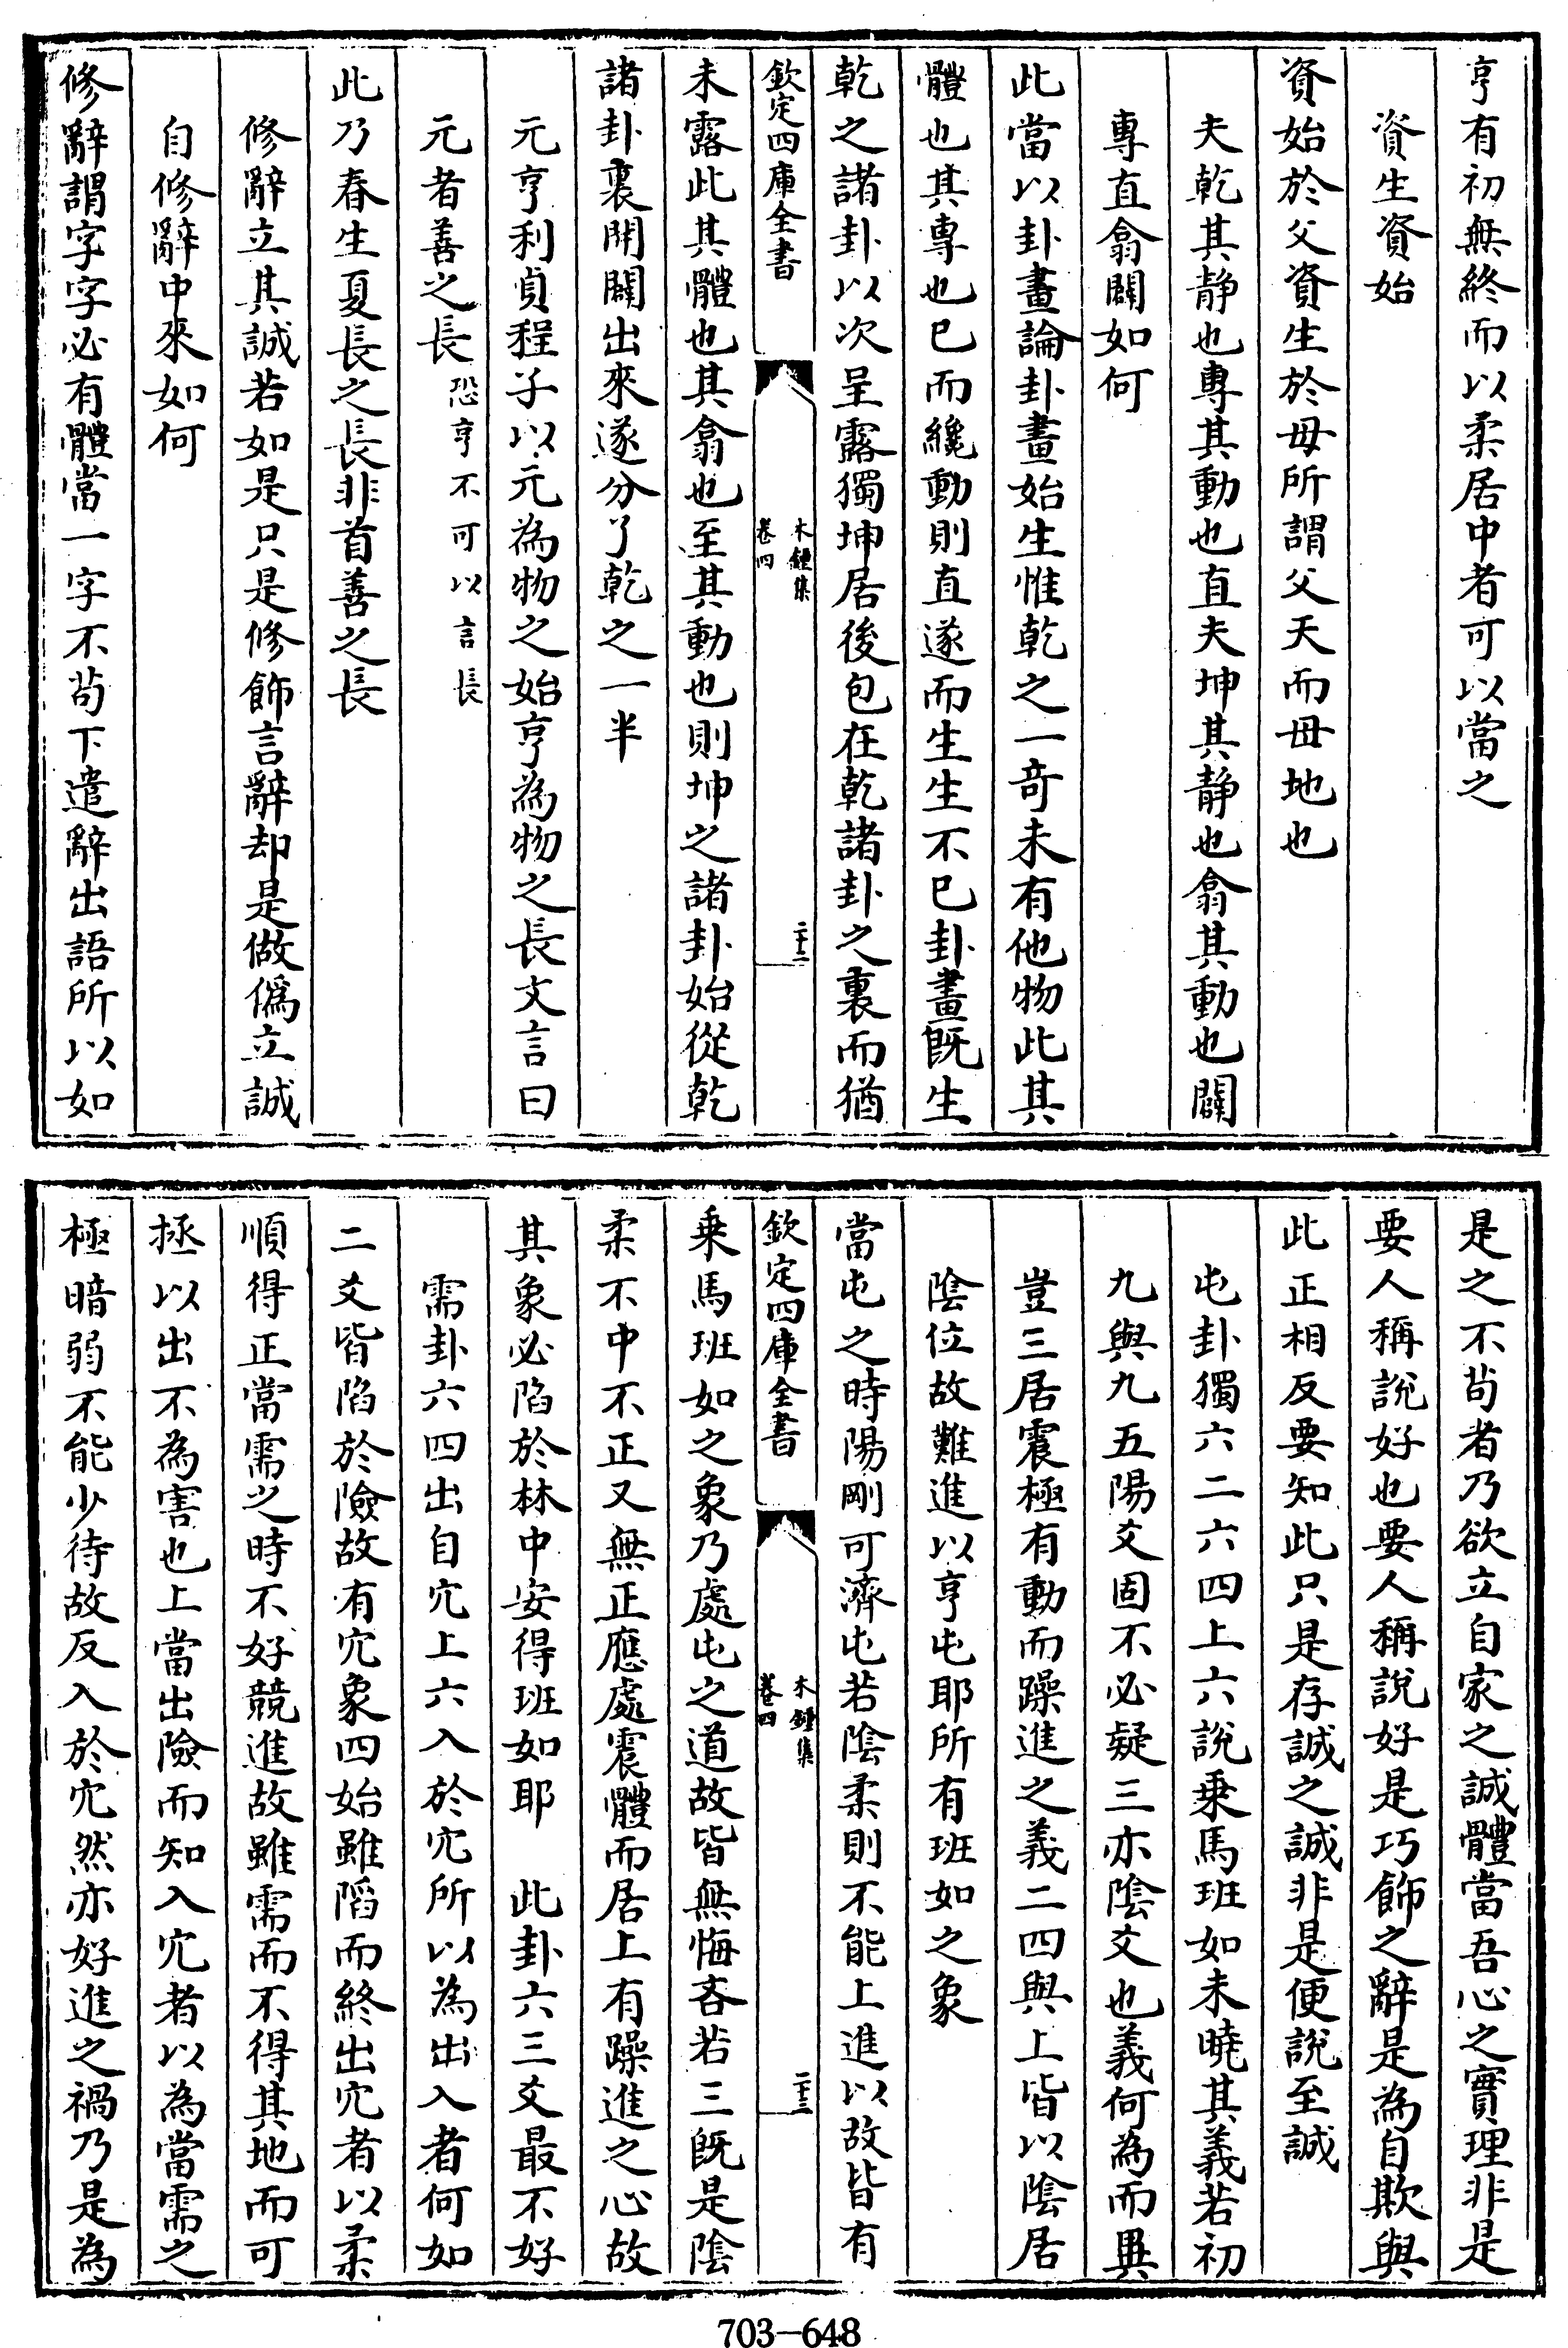 亨有初無終而以柔居中者可以當之
資生資始
資始於父資生於母所謂父天而母地也
夫乾其靜也專其動也直夫坤其靜也翕其動也闢
專直翕闢如何
此當以卦畫論卦畫始生惟乾之一竒未有他物此其
體也其專也已而纔動則直遂而生生不已卦畫既生
乾之諸卦以次呈露獨坤居後包在乾諸卦之裏而猶
欽定四庫全書
木鍾集
卷四
二十二
未露此其體也其翕也至其動也則坤之諸卦始從乾
諸卦裏開闢出來遂分了乾之一半
元亨利貞程子以元為物之始亨為物之長文言曰
元者善之長恐亨不可以言長
此乃春生夏長之長非首善之長
修辭立其誠若如是只是修飾言辭却是做偽立誠
自修辭中來如何
修辭謂字字必有體當一字不苟下遣辭出語所以如
是之不苟者乃欲立自家之誠體當吾心之實理非是
要人稱說好也要人稱說好是巧飾之辭是為自欺與
此正相反要知此只是存誠之誠非是便說至誠
屯卦獨六二六四上六說乗馬班如未曉其義若初
九與九五陽爻固不必疑三亦陰爻也義何為而異
豈三居震極有動而躁進之義二四與上皆以陰居
陰位故難進以亨屯耶所有班如之象
當屯之時陽剛可濟屯若陰柔則不能上進以故皆有
欽定四庫全書
木鍾集
卷四
二十三
乗馬班如之象乃處屯之道故皆無悔吝若三既是陰
柔不中不正又無正應處震體而居上有躁進之心故
其象必陷於林中安得班如耶　此卦六三爻最不好
需卦六四出自穴上六入於穴所以為出入者何如
二爻皆陷於險故有穴象四始雖陷而終出穴者以柔
順得正當需之時不好競進故雖需而不得其地而可
拯以出不為害也上當出險而知入穴者以為當需之
極暗弱不能少待故反入於穴然亦好進之禍乃是為
703—648